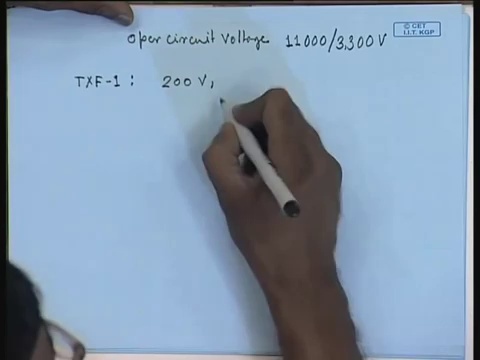 Open circuit Voltage 11000/3,300 V
© CET
I.I.T. KGP
TXF-1 : 200 V,